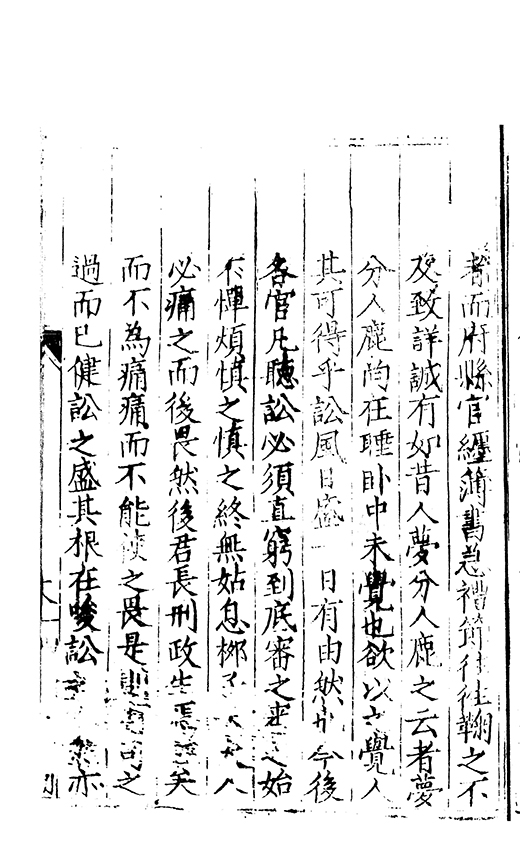 者而府縣官經簿書急禮節往往鞫之不
及致詳誠有如昔人夢分人鹿之云者夢
分人鹿尚在睡卧中未覺也欲以覺人
其可得乎訟風日盛一日有由然今後
各官凡聽訟必須直窮到底審之始
不憚煩慎之慎之終無姑息
必痛之而後畏然後君長刑政生焉
而不為痛痛而不能使之畏是司之
過而已健訟之盛其根在唆訟亦